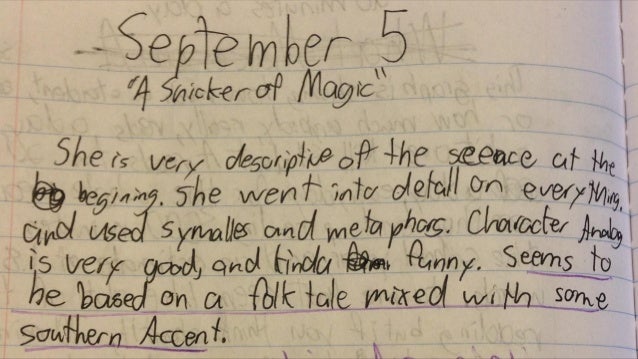 September 5
"A Snicker of Magic"
She is very descriptive of the seence at the
begining. She went into detall on everything,
and used symalles and metaphors. Character Analog
is very good, and kinda funny. Seems to
be based on a folk tale mixed with some
southern Accent.